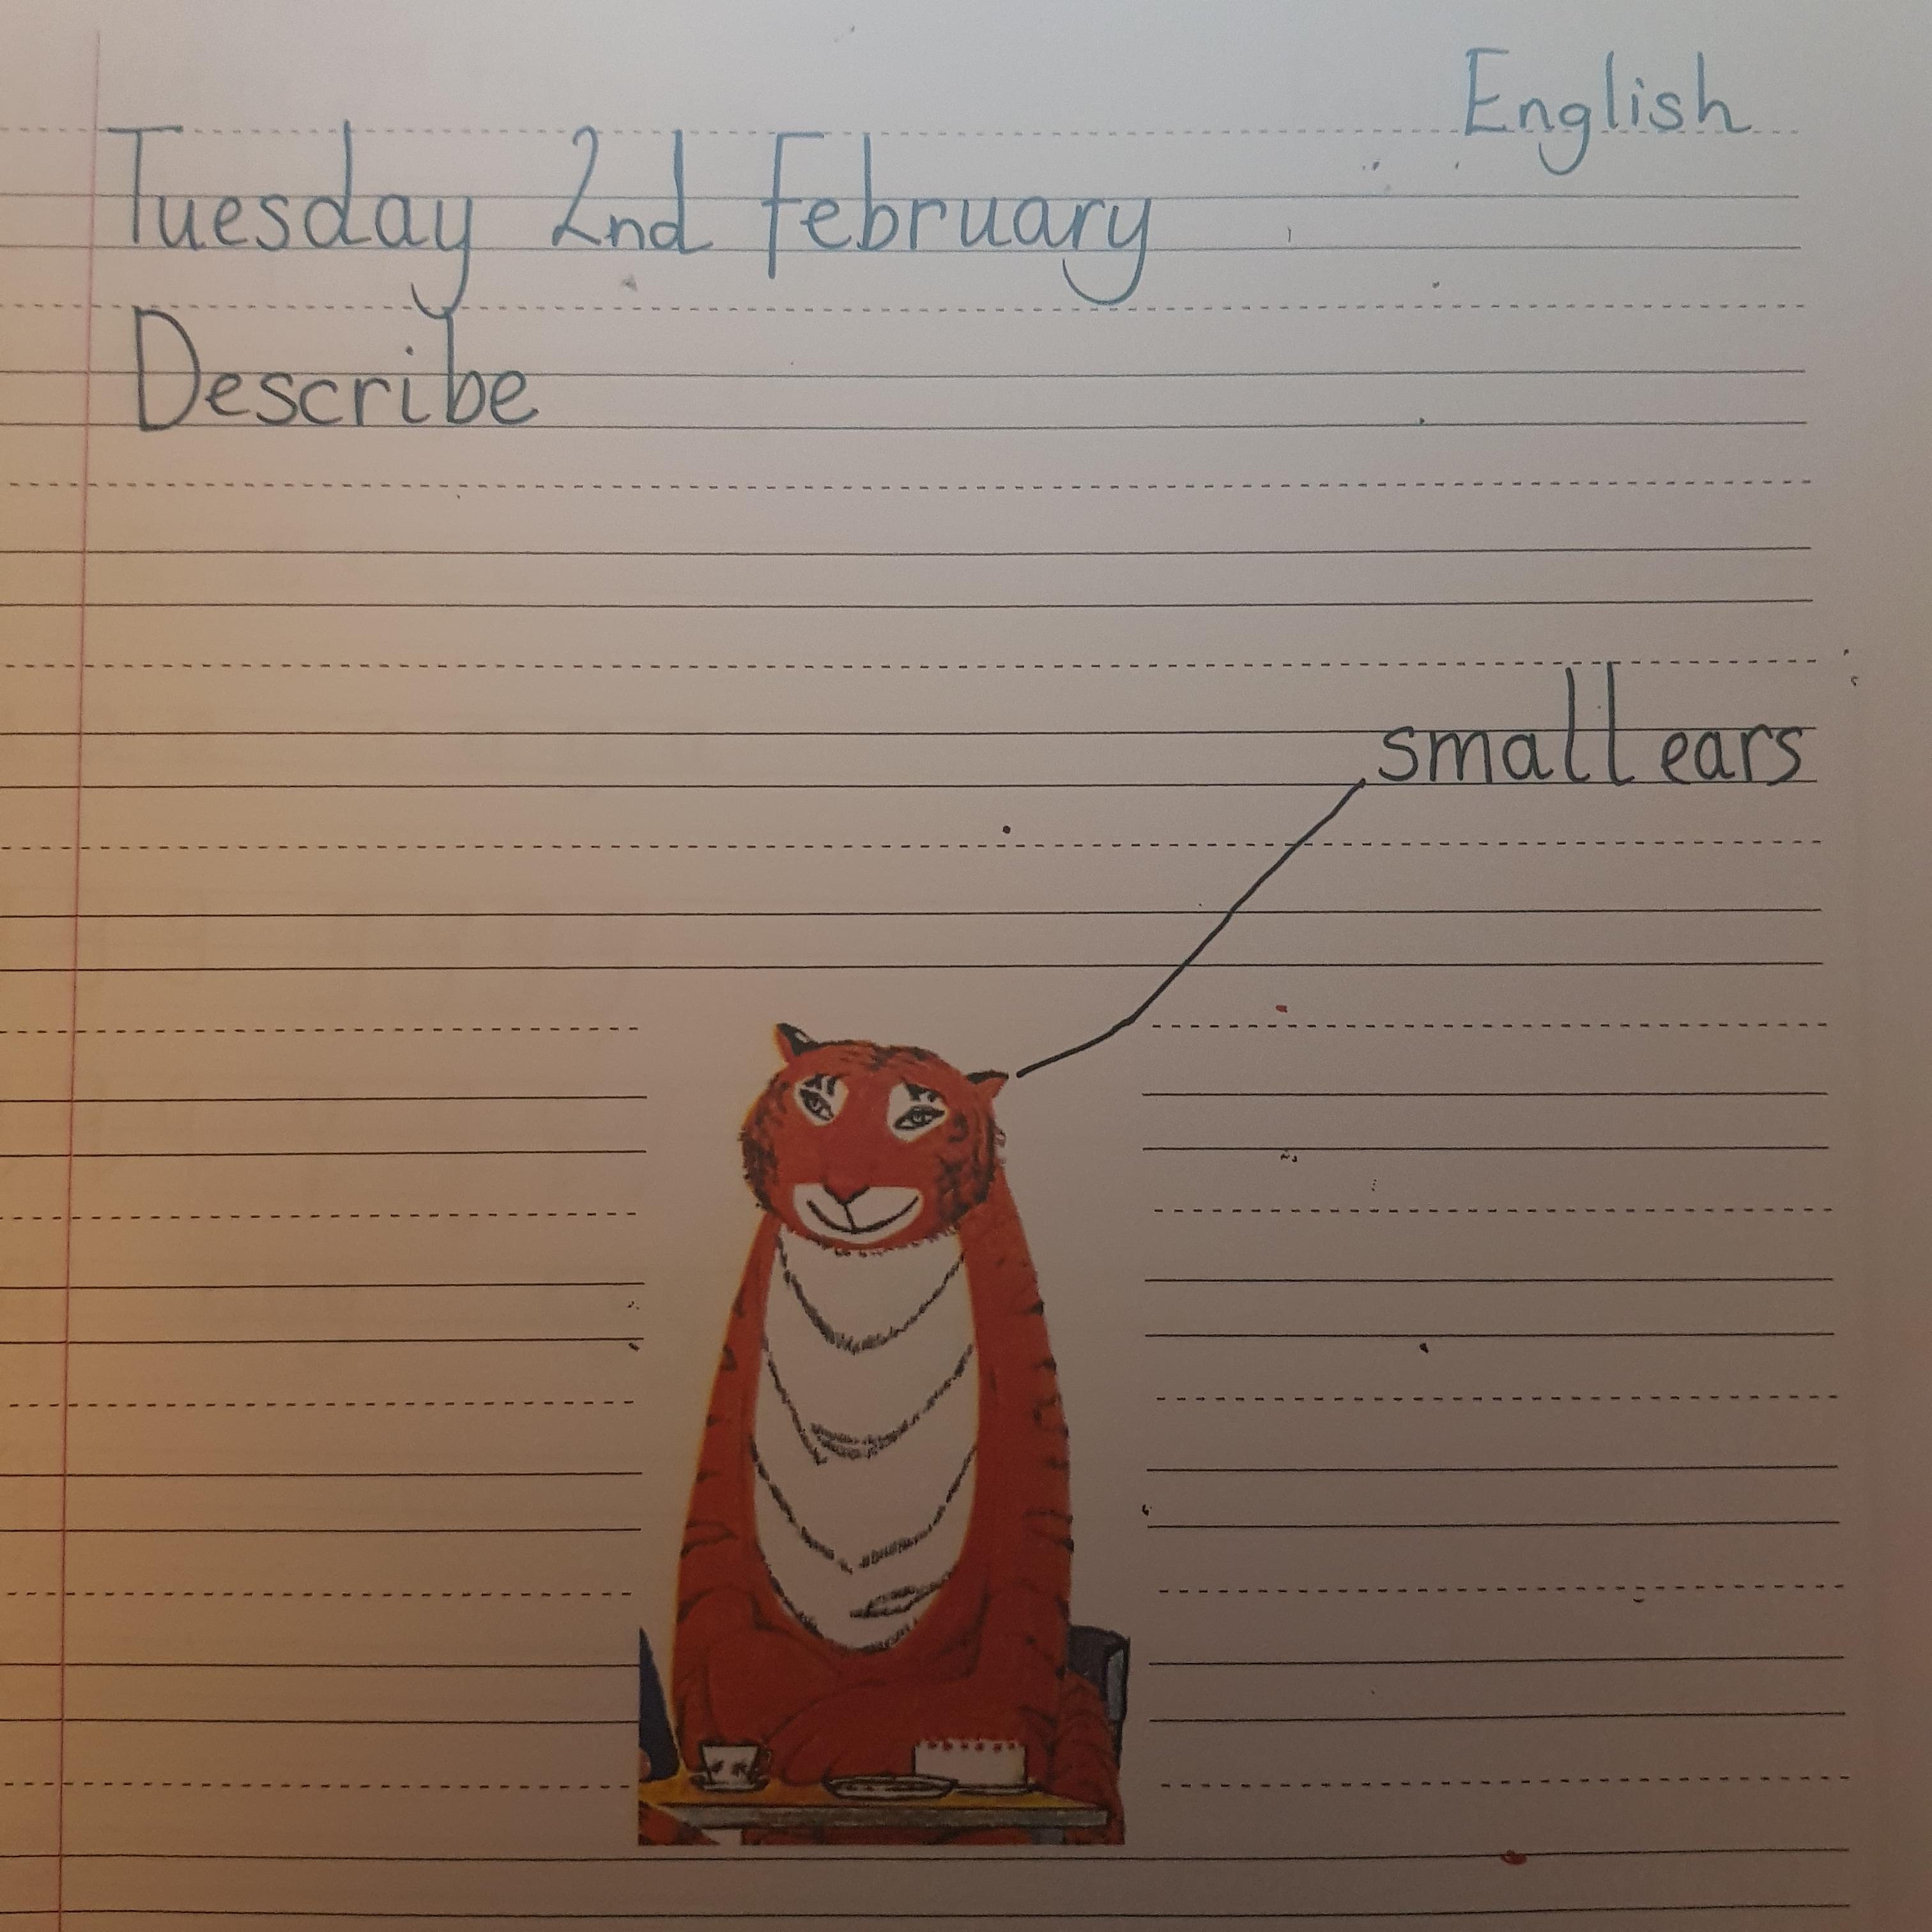 English
Tuesday 2nd February
Describe
small ears